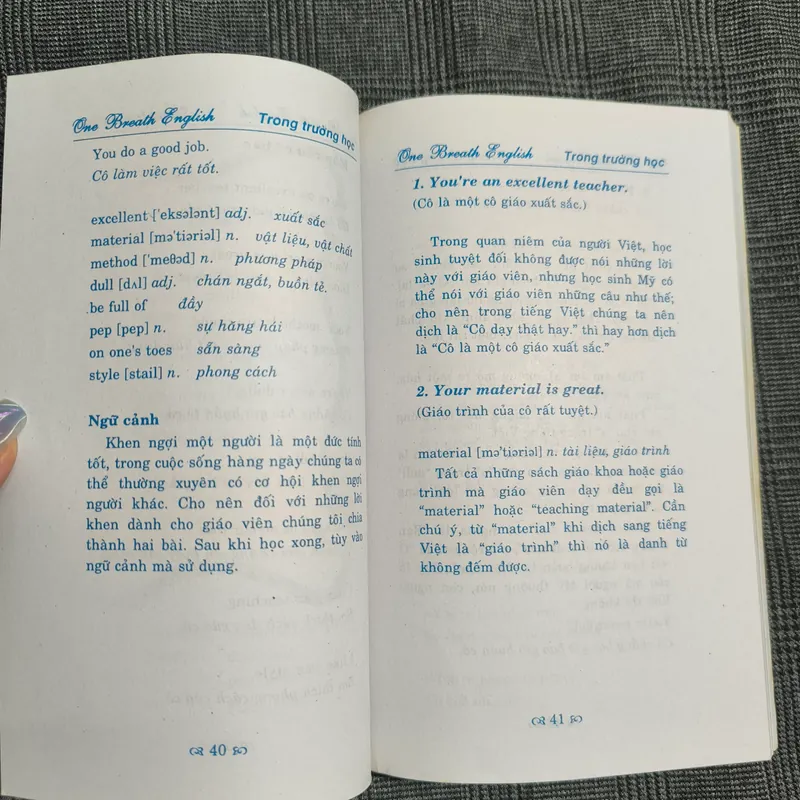 One Breath English Trong trường học
You do a good job.
Cô làm việc rất tốt.
excellent ['eksələnt] adj. xuất sắc
material [mə'tiəriəl] n. vật liệu, vật chất
method ['meθəd] n. phương pháp
dull [dʌl] adj. chán ngắt, buồn tẻ.
be full of đầy
pep [pep] n. sự hăng hái
on one's toes sẵn sàng
style [stail] n. phong cách
Ngữ cảnh
Khen ngợi một người là một đức tính
tốt, trong cuộc sống hàng ngày chúng ta có
thể thường xuyên có cơ hội khen ngợi
người khác. Cho nên đối với những lời
khen dành cho giáo viên chúng tôi chia
thành hai bài. Sau khi học xong, tùy vào
ngữ cảnh mà sử dụng.
40
One Breath English Trong trường học
1. You're an excellent teacher.
(Cô là một cô giáo xuất sắc.)
Trong quan niêm của người Việt, học
sinh tuyệt đối không được nói những lời
này với giáo viên, nhưng học sinh Mỹ có
thể nói với giáo viên những câu như thế;
cho nên trong tiếng Việt chúng ta nên
dịch là "Cô dạy thật hay." thì hay hơn dịch
là "Cô là một cô giáo xuất sắc."
2. Your material is great.
(Giáo trình của cô rất tuyệt.)
material [mə'tiəriəl] n. tài liệu, giáo trình
Tất cả những sách giáo khoa hoặc giáo
trình mà giáo viên dạy đều gọi là
"material" hoặc "teaching material". Cần
chú ý, từ "material" khi dịch sang tiếng
Việt là "giáo trình" thì nó là danh từ
không đếm được.
41